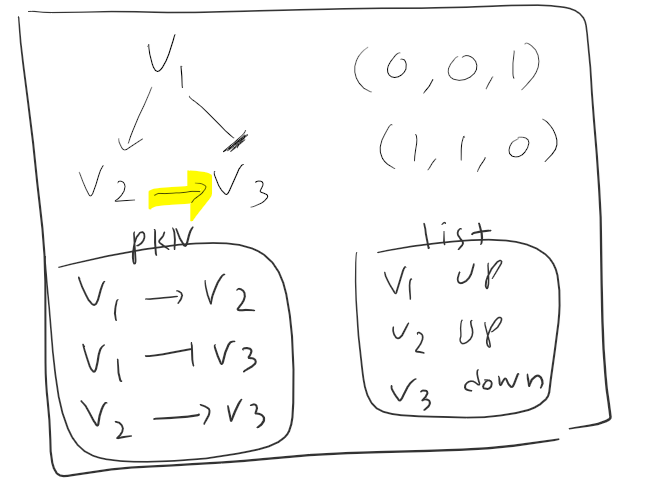 V1
(0, 0, 1)
(1, 1, 0)
V2 → V3
PKN
V1 → V2
V1 ⊣ V3
V2 → V3
list
V1 UP
V2 UP
V3 down